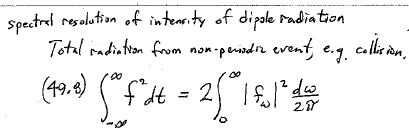 spectral resolution of intensity of dipole radiation
Total radiation from non-periodic event, e.g. collision,
(49.8) ∫_{-∞}^{∞} f² dt = 2∫_0^∞ |f_ω|² dω/2π